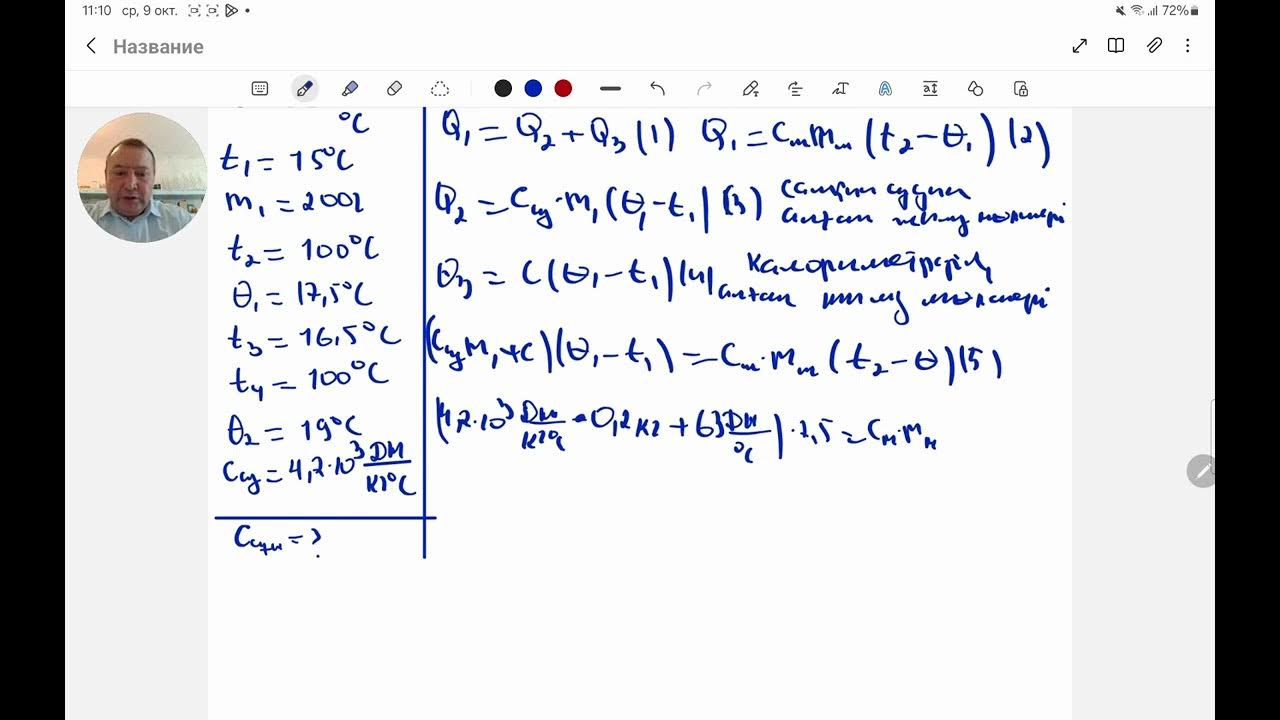 11:10 ср, 9 окт.
72%
Название
°C
t₁ = 15°C
m₁ = 200г
t₂ = 100°C
θ₁ = 17,5°C
t₃ = 16,5°C
t₄ = 100°C
θ₂ = 19°C
= 4,2·10³ Дж/кг°C
= ?
Q₁ = Q₂ + Q₃ (1) Q₁ = Cₘmₘ (t₂ − θ₁) (2)
Q₂ = C · m₁ (θ₁ − t₁) (3)
алған жылу мөлшері
Q₃ = C (θ₁ − t₁) (4) калориметрдің
алған жылу мөлшері
(C m₁ + C) (θ₁ − t₁) = Cₘ · mₘ (t₂ − θ) (5)
(4,2·10³ Дж/кг°C · 0,2кг + 63 Дж/°C) · 2,5 = Cₘ · mₘ